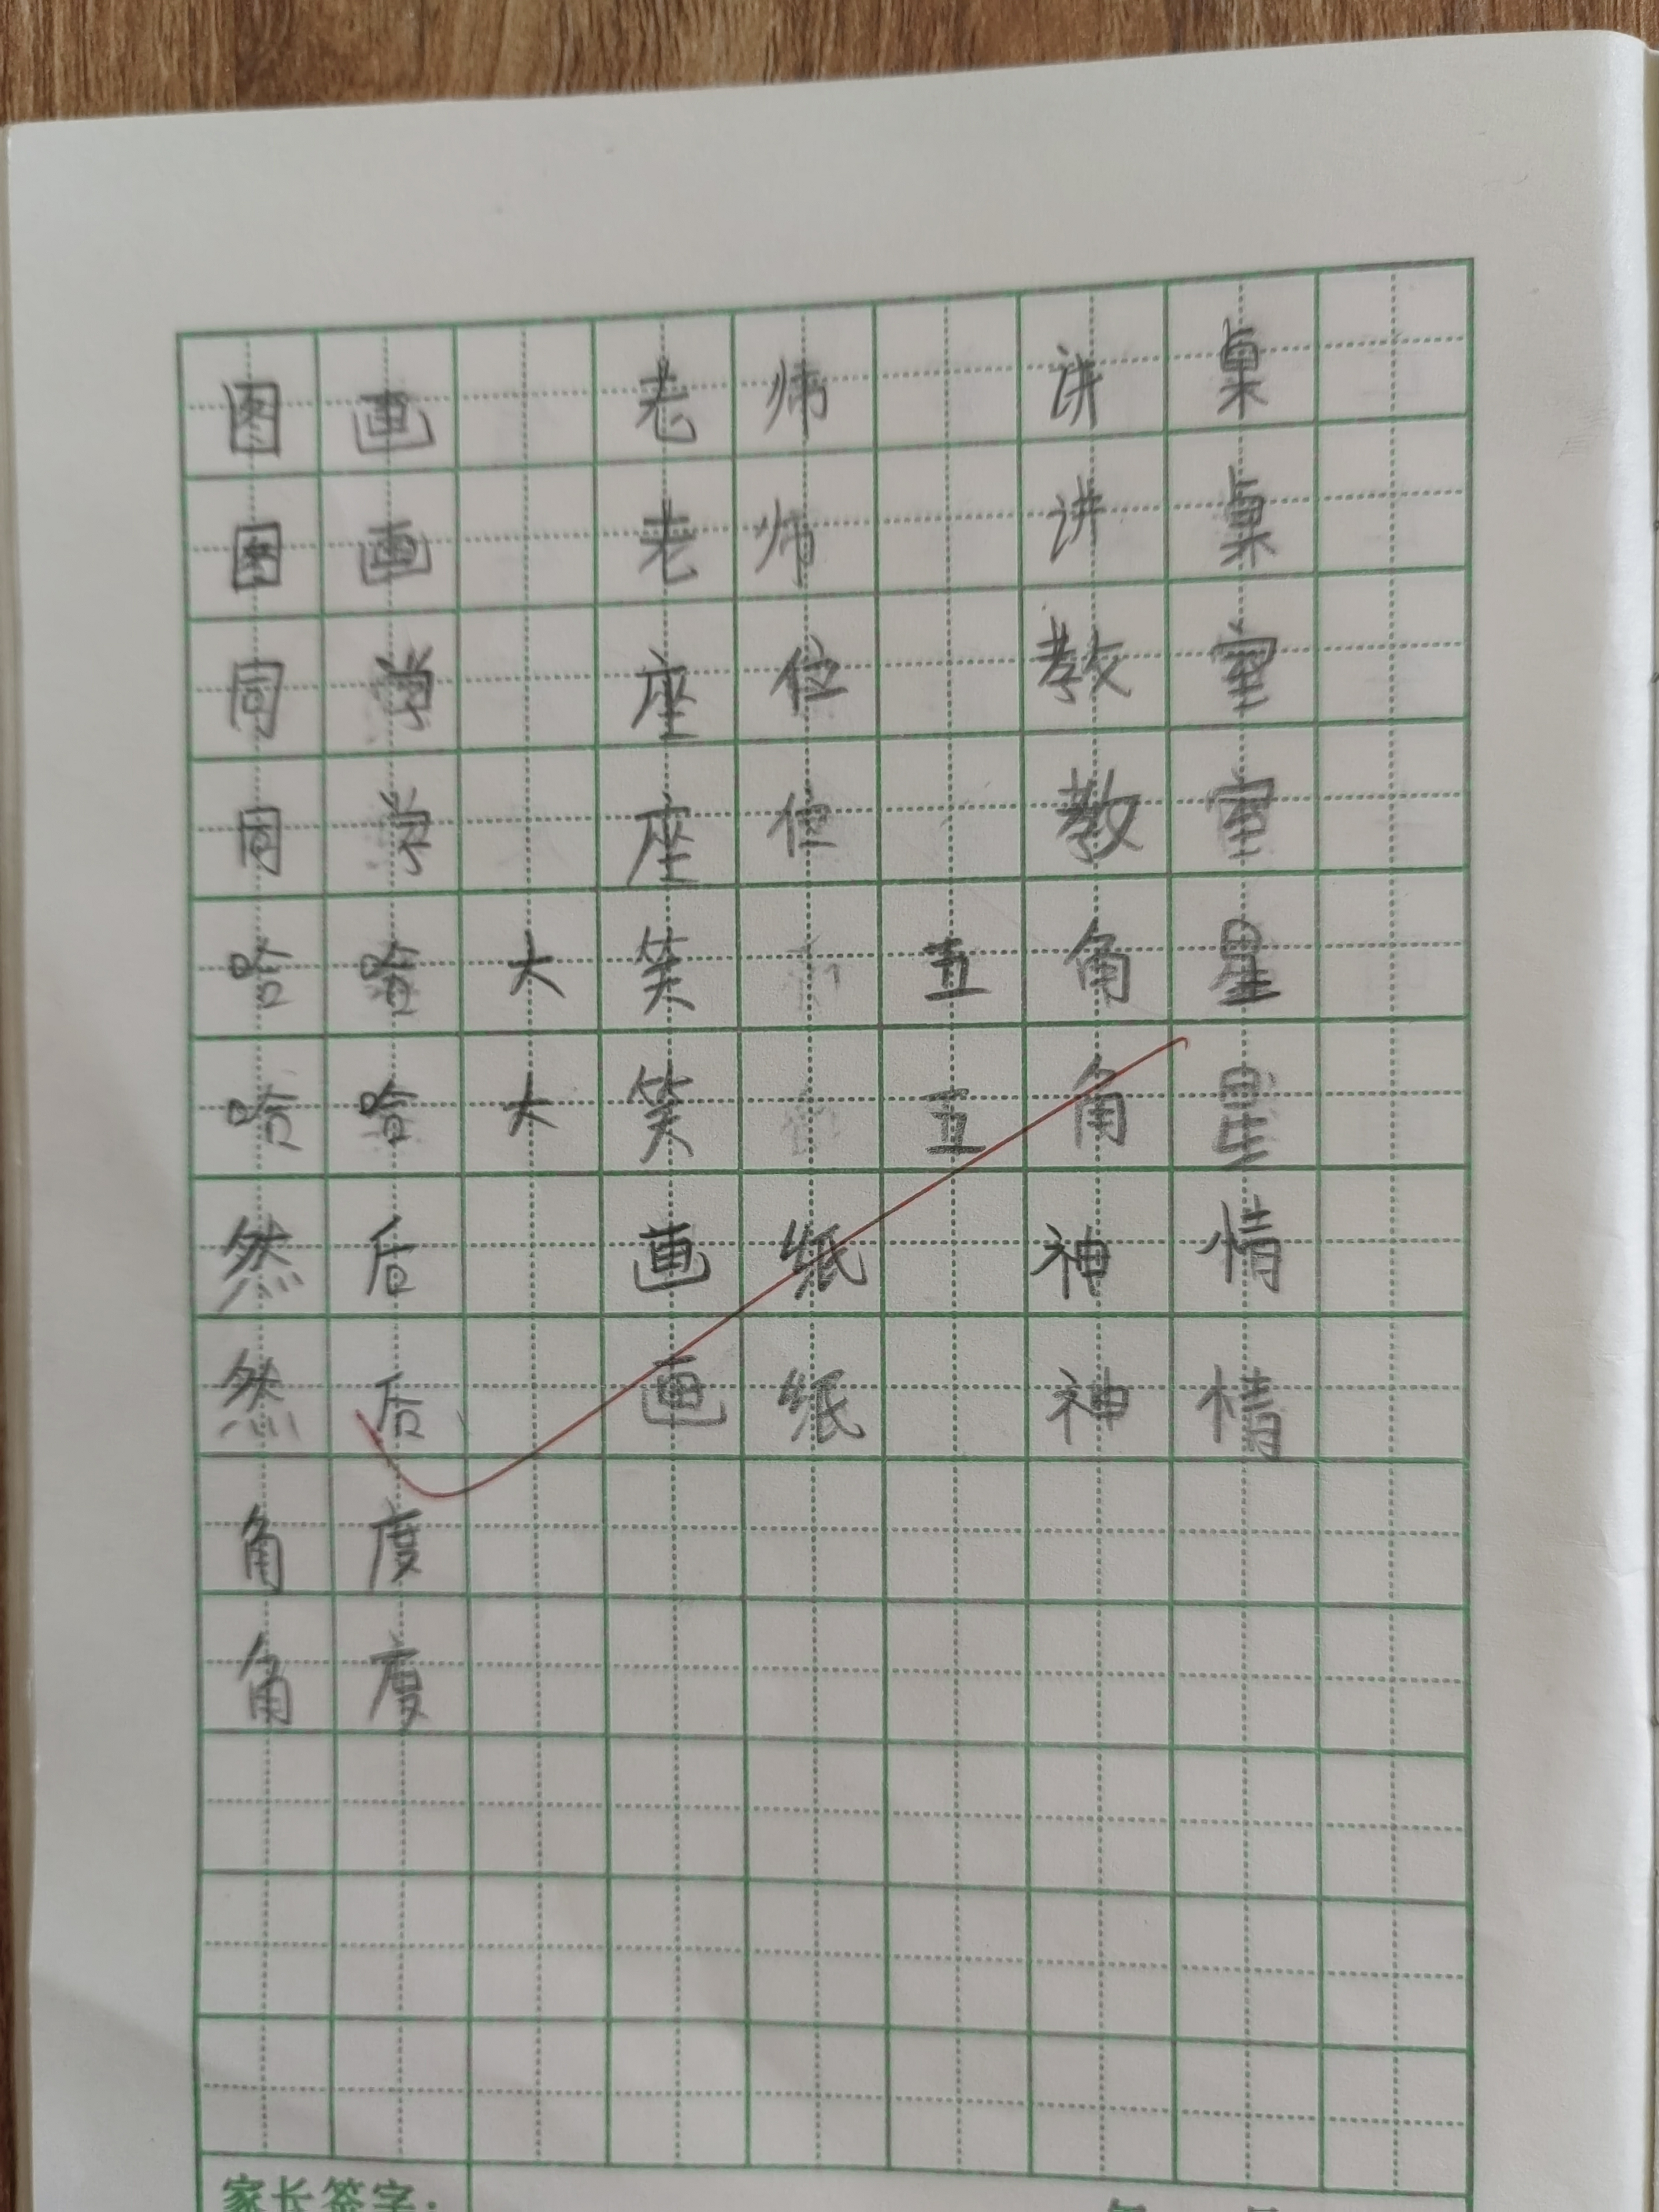 图画 老师 讲桌
图画 老师 讲桌
同学 座位 教室
同学 座位 教室
哈哈大笑 五角星
哈哈大笑 五角星
然后 画纸 神情
然后 画纸 神情
角度
角度
家长签字：